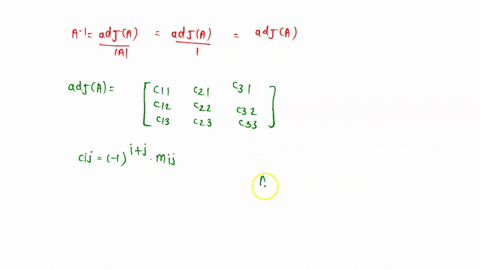 A⁻¹ = adj(A) / |A| = adj(A) / 1 = adj(A)
adj(A) = [ C11 C21 C31
C12 C22 C32
C13 C23 C33 ]
Cij = (-1)^i+j . Mij